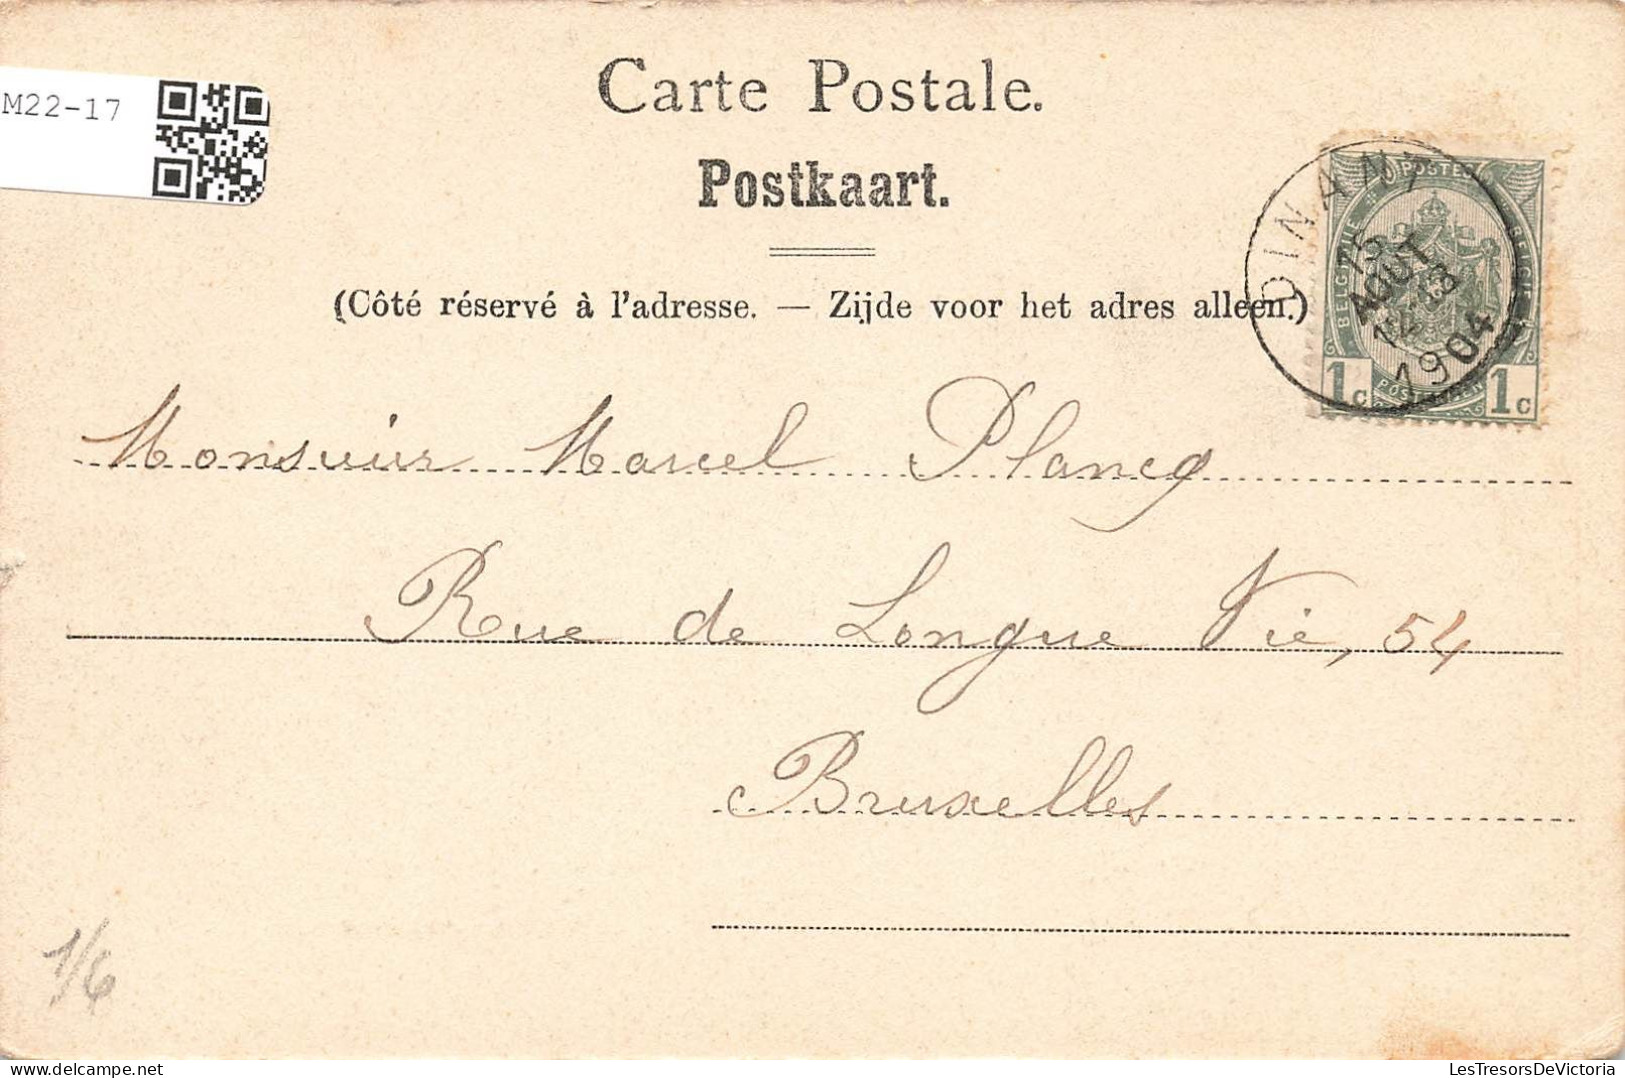 Carte Postale.
M22-17
Postkaart.
(Côté réservé à l'adresse. — Zijde voor het adres alleen.)
DINANT
15
AOUT
12-13
1904
POSTES
BELGIQUE
BELGIE
1c 1c
Monsieur Marcel Plancq
Rue de Longue Vie, 54
Bruxelles
1/6
LesTresorsDeVictoria